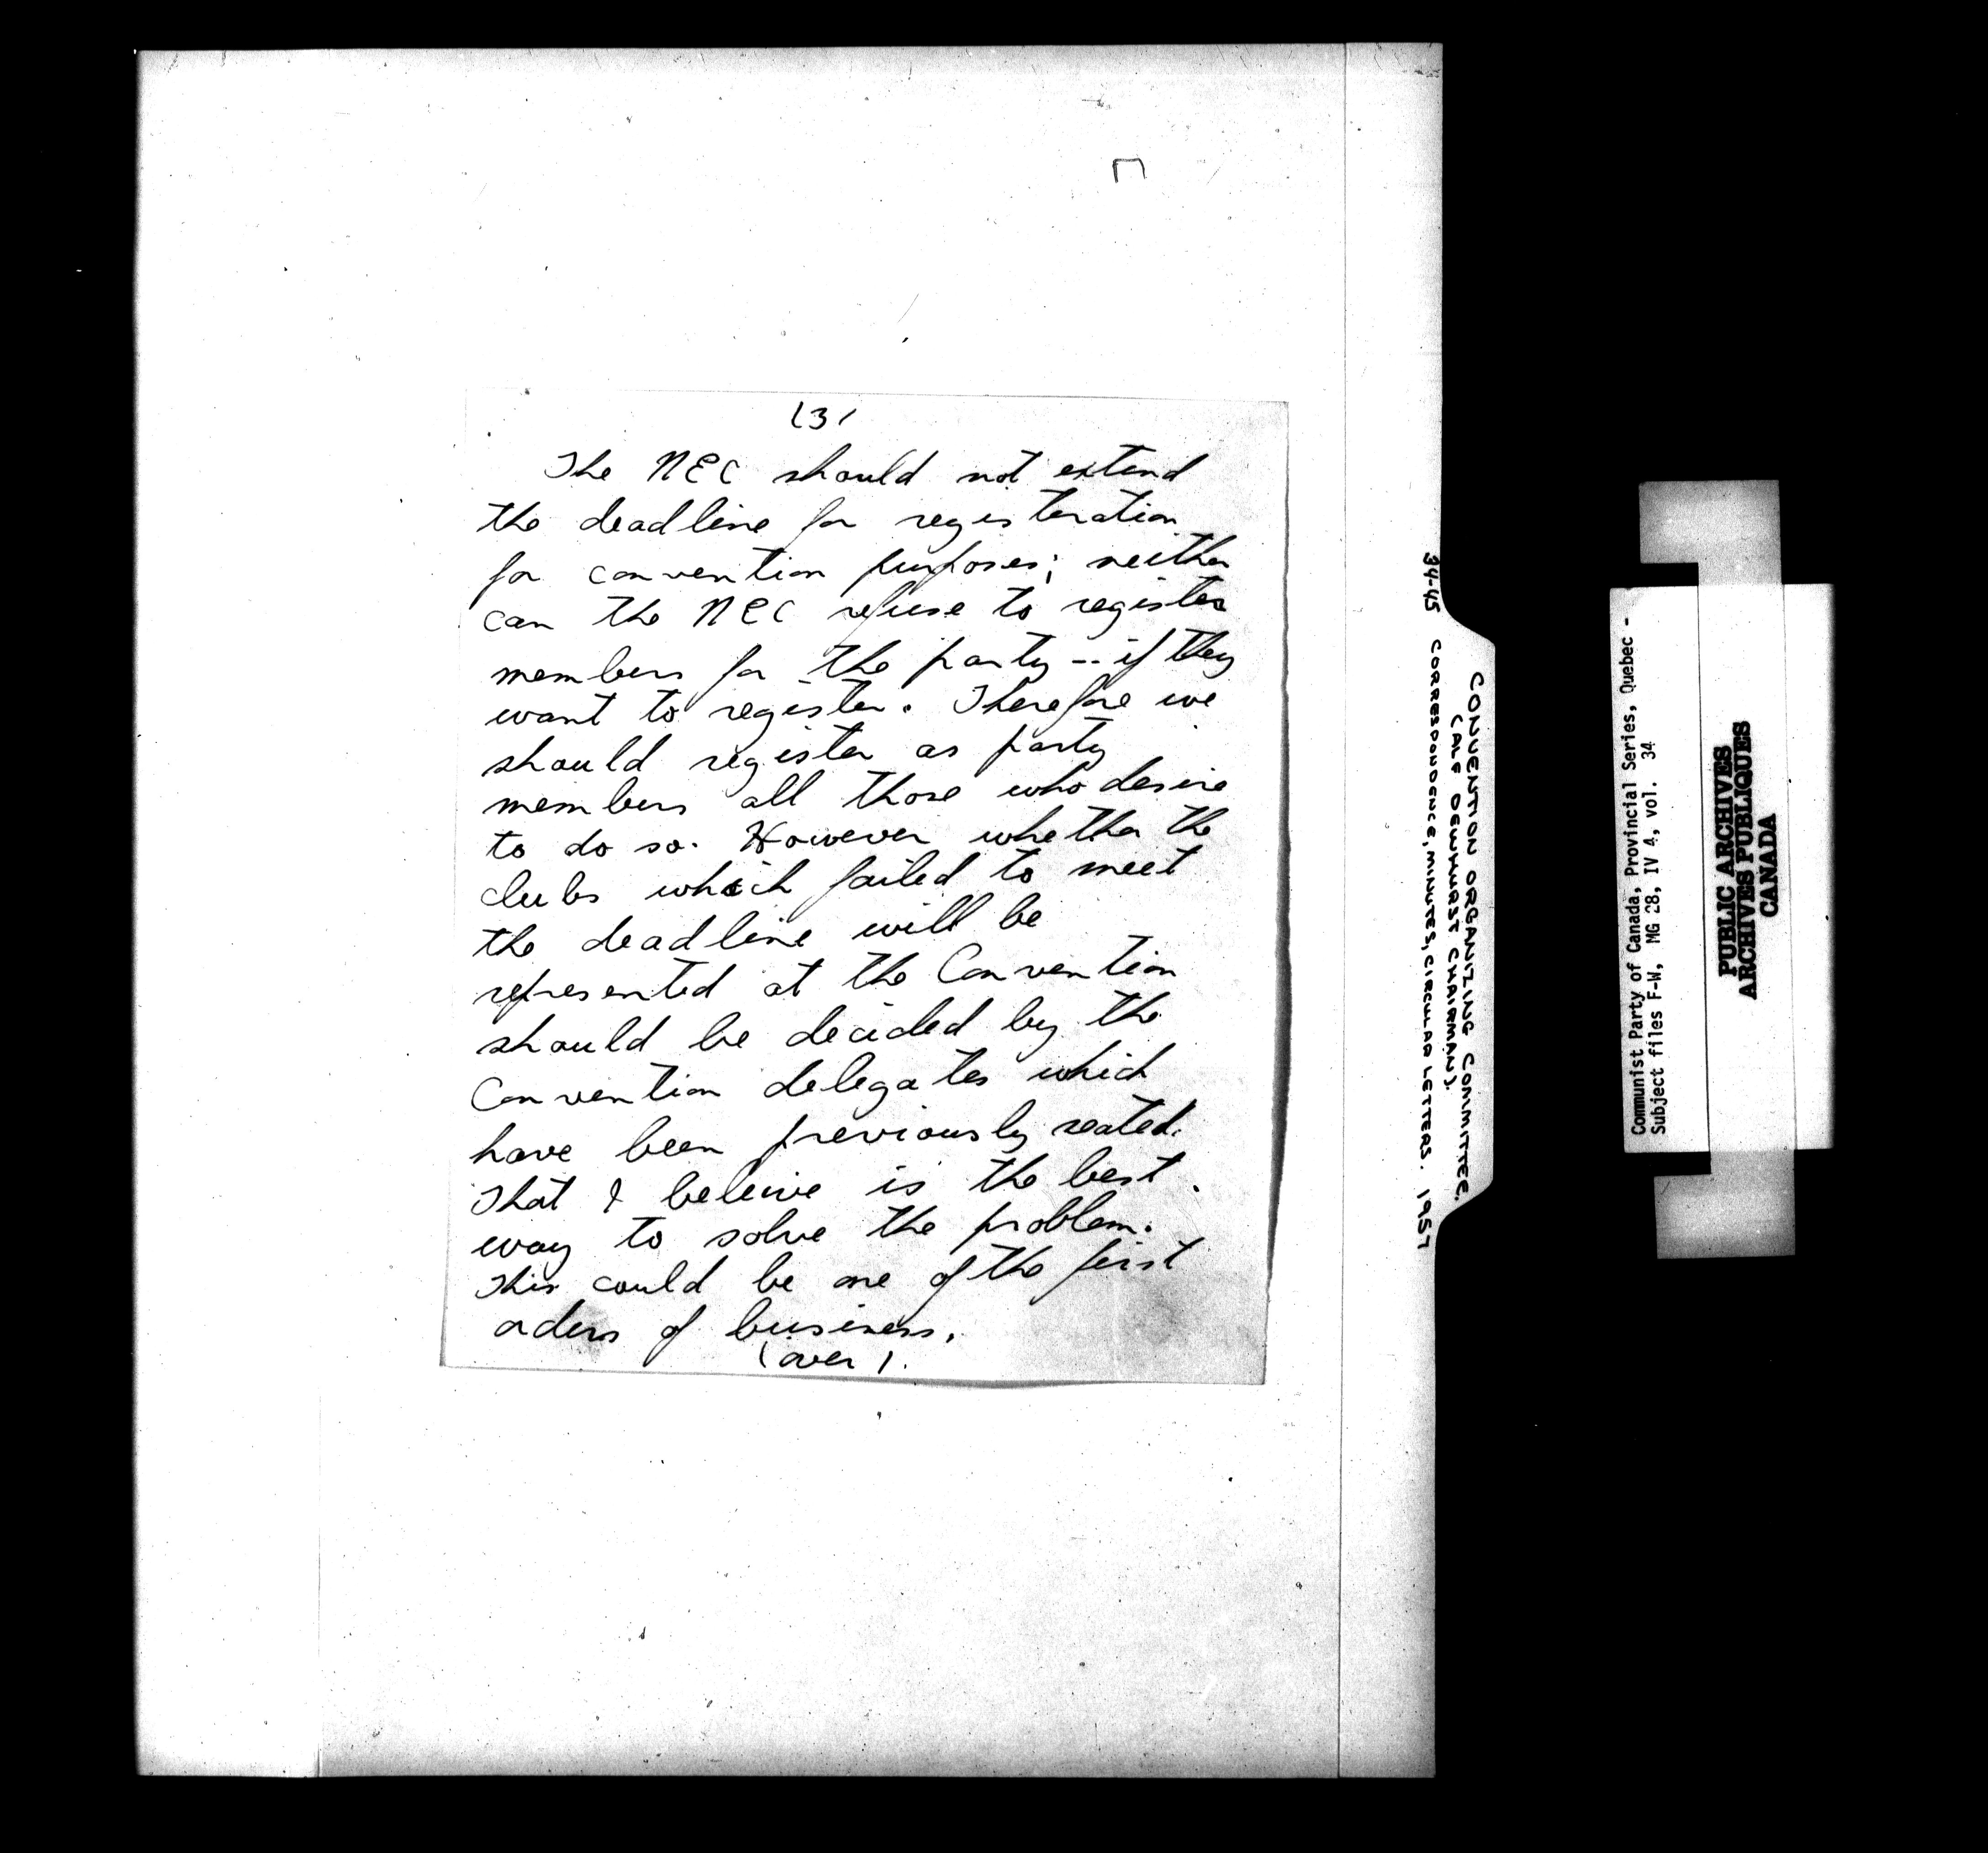 (3)
The NEC should not extend
the deadline for registeration
for convention purposes; neither
can the NEC refuse to register
members for the party -- if they
want to register. Therefore we
should register as party
members all those who desire
to do so. However whether the
clubs which failed to meet
the deadline will be
represented at the Convention
should be decided by the
Convention delegates which
have been previously seated.
That I beleive is the best
way to solve the problem.
This could be one of the first
orders of business.
(over).
34-45 CONVENTION ORGANIZING COMMITTEE.
(ALF DEWHURST CHAIRMAN).
CORRESPONDENCE, MINUTES, CIRCULAR LETTERS. 1957
Communist Party of Canada, Provincial Series, Quebec -
Subject files F-W, MG 28, IV 4, vol. 34
PUBLIC ARCHIVES
ARCHIVES PUBLIQUES
CANADA